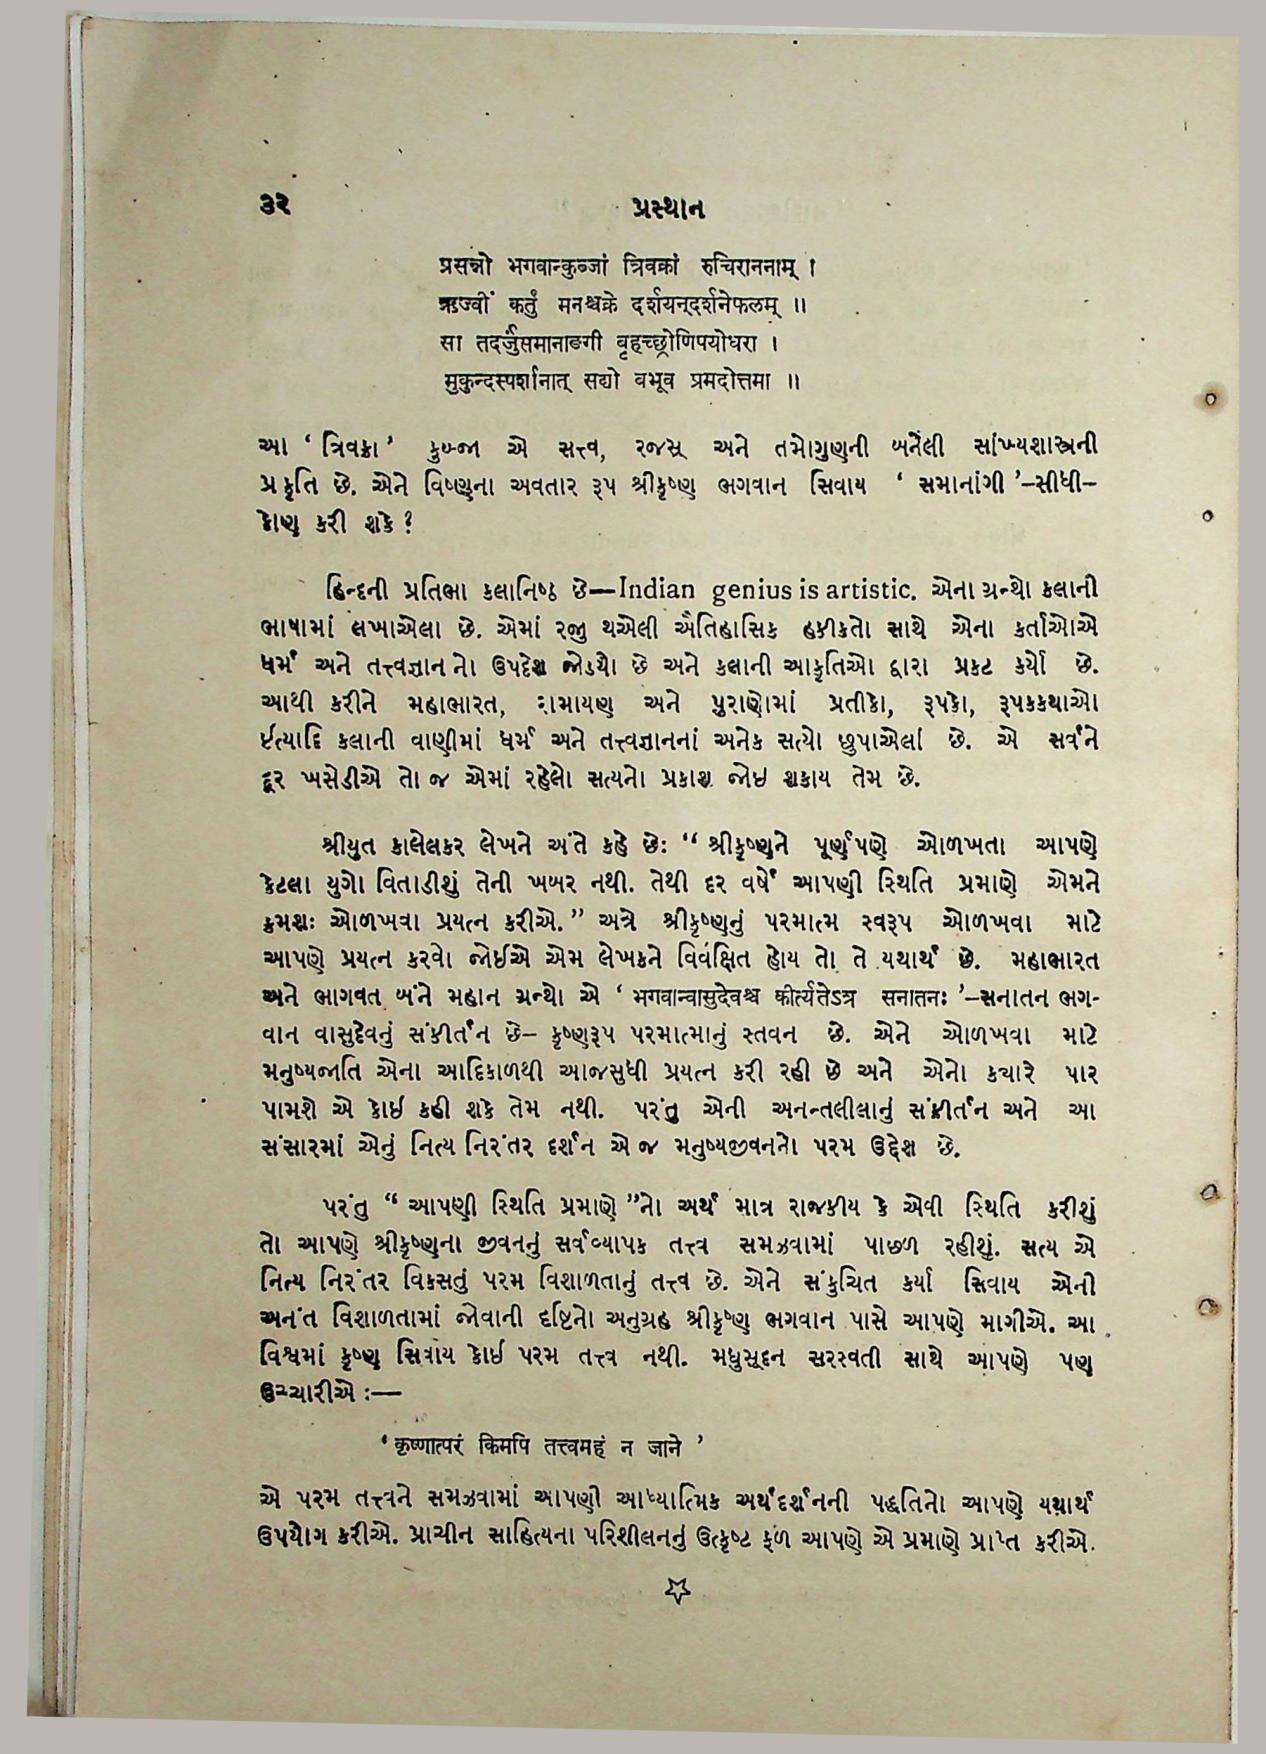 ૩૨ પ્રસ્થાન
प्रसन्नो भगवान्कुब्जां त्रिवक्रां रुचिराननाम् ।
ऋज्वीं कर्तुं मनश्चक्रे दर्शयन्दर्शनेफलम् ॥
सा तदर्जुसमानाङगी बृहच्छ्रोणिपयोधरा ।
मुकुन्दस्पर्शानात् सद्यो बभूव प्रमदोत्तमा ॥
આ ‘ ત્રિવક્રા ’ કુબ્જા એ સત્ત્વ, રજસ્ અને તમોગુણની બનેલી સાંખ્યશાસ્ત્રની
પ્રકૃતિ છે. એને વિષ્ણુના અવતાર રૂપ શ્રીકૃષ્ણ ભગવાન સિવાય ‘ સમાનાંગી ’–સીધી–
કોણ કરી શકે ?
હિન્દની પ્રતિભા કલાનિષ્ઠ છે—Indian genius is artistic. એના ગ્રન્થો કલાની
ભાષામાં લખાએલા છે. એમાં રજુ થએલી ઐતિહાસિક હકીકતો સાથે એના કર્તાઓએ
ધર્મ અને તત્ત્વજ્ઞાન નો ઉપદેશ જોડયો છે અને કલાની આકૃતિઓ દ્વારા પ્રકટ કર્યો છે.
આથી કરીને મહાભારત, રામાયણ અને પુરાણોમાં પ્રતીકો, રૂપકો, રૂપકકથાઓ
ઈત્યાદિ કલાની વાણીમાં ધર્મ અને તત્ત્વજ્ઞાનનાં અનેક સત્યો છુપાએલાં છે. એ સર્વને
દૂર ખસેડીએ તો જ એમાં રહેલો સત્યનો પ્રકાશ જોઈ શકાય તેમ છે.
શ્રીયુત કાલેલકર લેખને અંતે કહે છેઃ “ શ્રીકૃષ્ણને પૂર્ણપણે ઓળખતા આપણે
કેટલા યુગો વિતાડીશું તેની ખબર નથી. તેથી દર વર્ષે આપણી સ્થિતિ પ્રમાણે એમને
ક્રમશઃ ઓળખવા પ્રયત્ન કરીએ.” અત્રે શ્રીકૃષ્ણનું પરમાત્મ સ્વરૂપ ઓળખવા માટે
આપણે પ્રયત્ન કરવો જોઈએ એમ લેખકને વિવક્ષિત હોય તો તે યથાર્થ છે. મહાભારત
અને ભાગવત બંને મહાન ગ્રન્થો એ ‘ भगवान्वासुदेवश्च कीर्त्यतेऽत्र सनातनः ’–સનાતન ભગ-
વાન વાસુદેવનું સંકીર્તન છે– કૃષ્ણરૂપ પરમાત્માનું સ્તવન છે. એને ઓળખવા માટે
મનુષ્યજાતિ એના આદિકાળથી આજસુધી પ્રયત્ન કરી રહી છે અને એનો કયારે પાર
પામશે એ કોઈ કહી શકે તેમ નથી. પરંતુ એની અનન્તલીલાનું સંકીર્તન અને આ
સંસારમાં એનું નિત્ય નિરંતર દર્શન એ જ મનુષ્યજીવનનો પરમ ઉદ્દેશ છે.
પરંતુ “ આપણી સ્થિતિ પ્રમાણે ”નો અર્થ માત્ર રાજકીય કે એવી સ્થિતિ કરીશું
તો આપણે શ્રીકૃષ્ણના જીવનનું સર્વવ્યાપક તત્ત્વ સમઝવામાં પાછળ રહીશું. સત્ય એ
નિત્ય નિરંતર વિકસતું પરમ વિશાળતાનું તત્ત્વ છે. એને સંકુચિત કર્યા સિવાય એની
અનંત વિશાળતામાં જોવાની દૃષ્ટિનો અનુગ્રહ શ્રીકૃષ્ણ ભગવાન પાસે આપણે માગીએ. આ
વિશ્વમાં કૃષ્ણ સિવાય કોઈ પરમ તત્ત્વ નથી. મધુસૂદન સરસ્વતી સાથે આપણે પણ
ઉચ્ચારીએ :—
‘ कृष्णात्परं किमपि तत्त्वमहं न जाने ’
એ પરમ તત્ત્વને સમઝવામાં આપણી આધ્યાત્મિક અર્થદર્શનની પદ્ધતિનો આપણે યથાર્થ
ઉપયોગ કરીએ. પ્રાચીન સાહિત્યના પરિશીલનનું ઉત્કૃષ્ટ ફળ આપણે એ પ્રમાણે પ્રાપ્ત કરીએ.